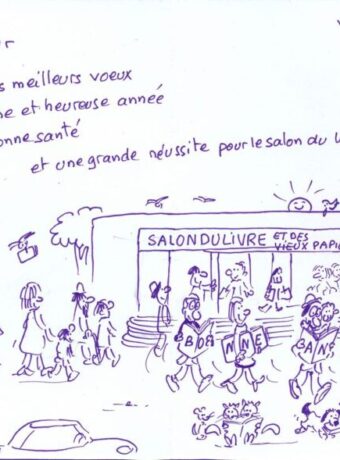 r
s meilleurs voeux
ne et heureuse anneé
onne santé
et une grande réussite pour le salon du L
SALON DU LIVRE ET DES
VIEUX PAPI